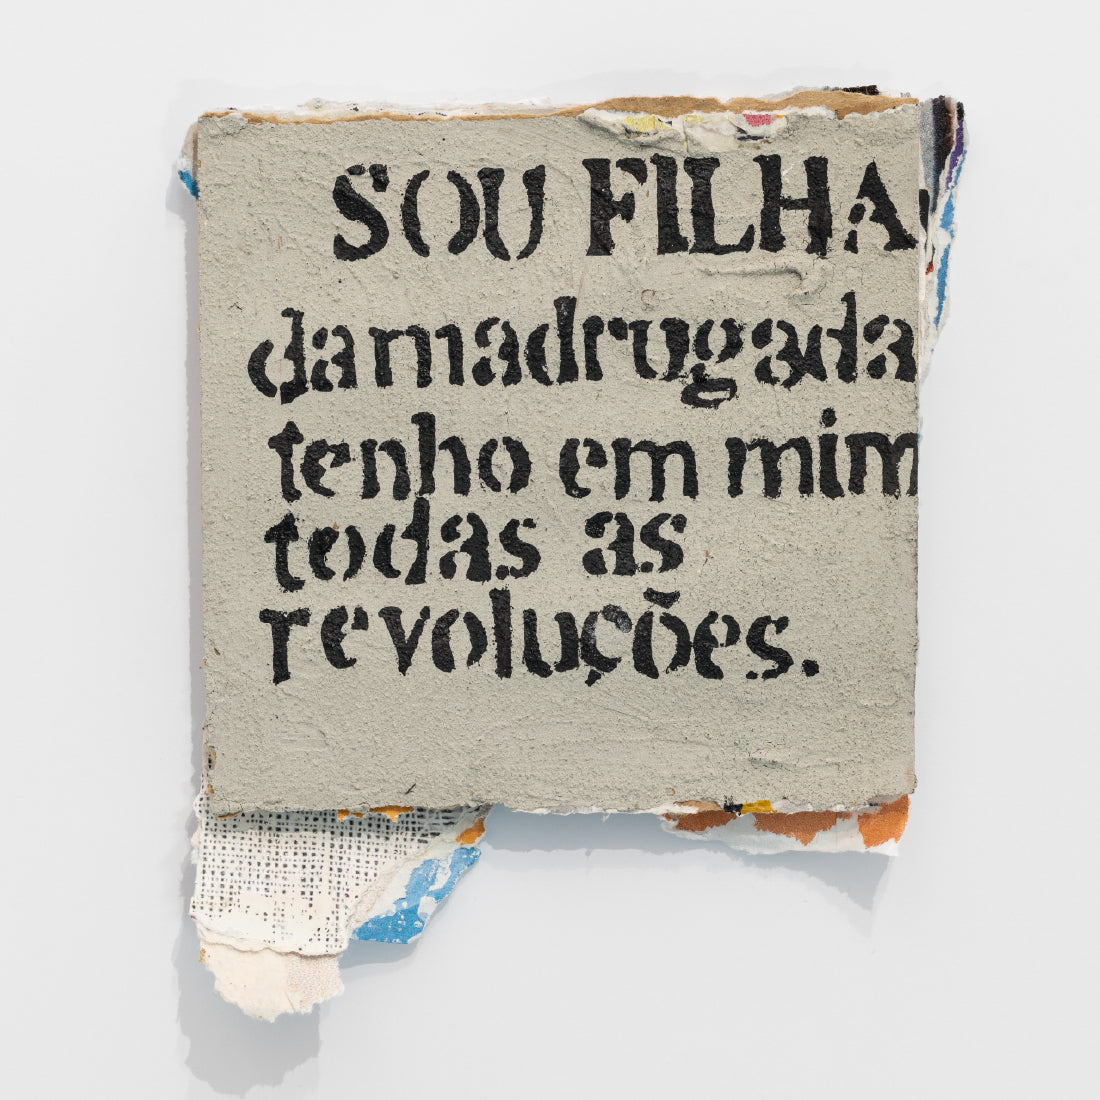 SOU FILHA
da madrugada
tenho em mim
todas as
revoluções.